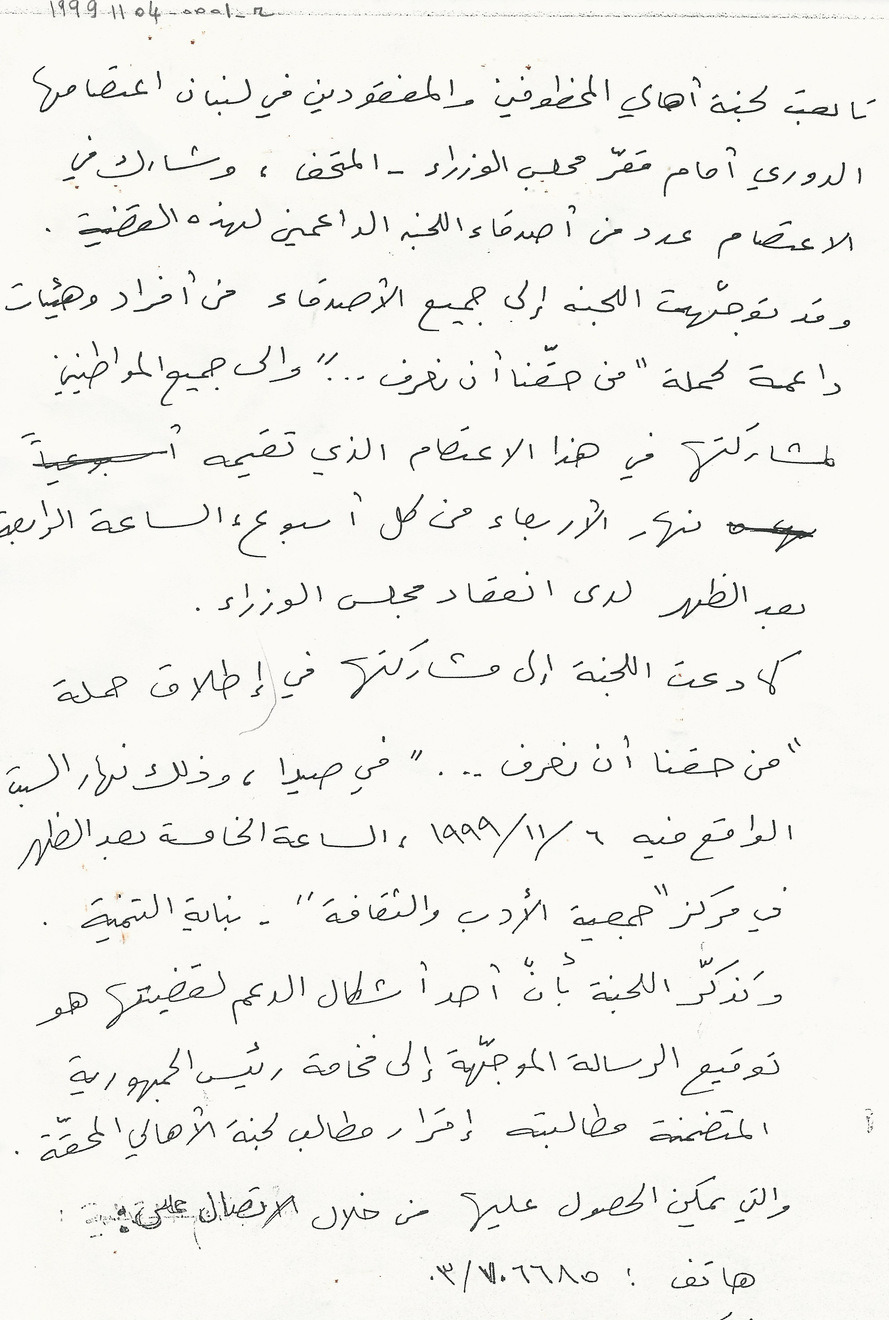 1999 11 04-0001-2
تابعت لجنة أهالي المخطوفين والمفقودين في لبنان اعتصامها
الدوري أمام مقرّ مجلس الوزراء - المتحف ، وشارك في
الاعتصام عدد من أصدقاء اللجنه الداعمين لهذه القضية .
وقد توجّهت اللجنه إلى جميع الأصدقاء من أفراد وهيئات
داعمة لحملة "من حقّنا أن نعرف ..." والى جميع المواطنين
لمشاركتها في هذا الاعتصام الذي تقيمه أسبوعياً
نهار الأربعاء من كل أسبوع ، الساعة الرابعة
بعد الظهر لدى انعقاد مجلس الوزراء .
كما دعت اللجنة إلى مشاركتها في إطلاق حملة
"من حقنا أن نعرف ..." في صيدا ، وذلك نهار السبت
الواقع فيه ٦ /١١/ ١٩٩٩ ، الساعة الخامسة بعد الظهر
في مركز "جمعية الأدب والثقافة" - بناية التنمية .
وتذكّر اللجنة بأنّ أحد أشكال الدعم لقضيتها هو
توقيع الرسالة الموجّهة إلى فخامة رئيس الجمهورية
المتضمنة مطالبته إقرار مطالب لجنة الأهالي المحقّة .
والتي يمكن الحصول عليها من خلال الاتصال على :
هاتف : ٠٣/٧٠٦٦٨٥